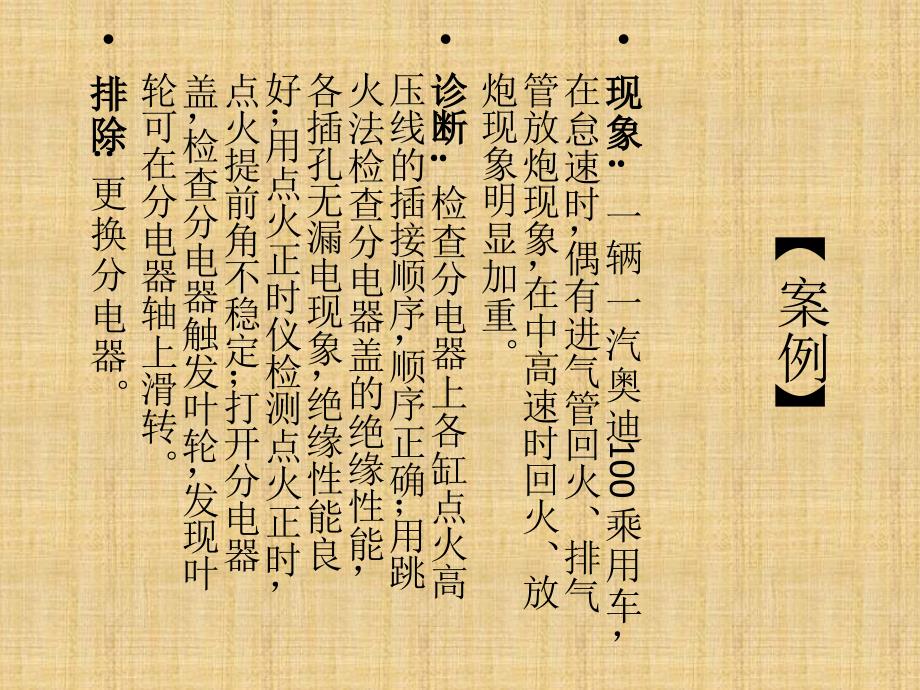 【案例】
• 现象：一辆一汽奥迪100乘用车，
在怠速时，偶有进气管回火、排气
管放炮现象，在中高速时回火、放
炮现象明显加重。
• 诊断：检查分电器上各缸点火高
压线的插接顺序，顺序正确；用跳
火法检查分电器盖的绝缘性能，
各插孔无漏电现象，绝缘性能良
好；用点火正时仪检测点火正时，
点火提前角不稳定；打开分电器
盖，检查分电器触发叶轮，发现叶
轮可在分电器轴上滑转。
• 排除：更换分电器。